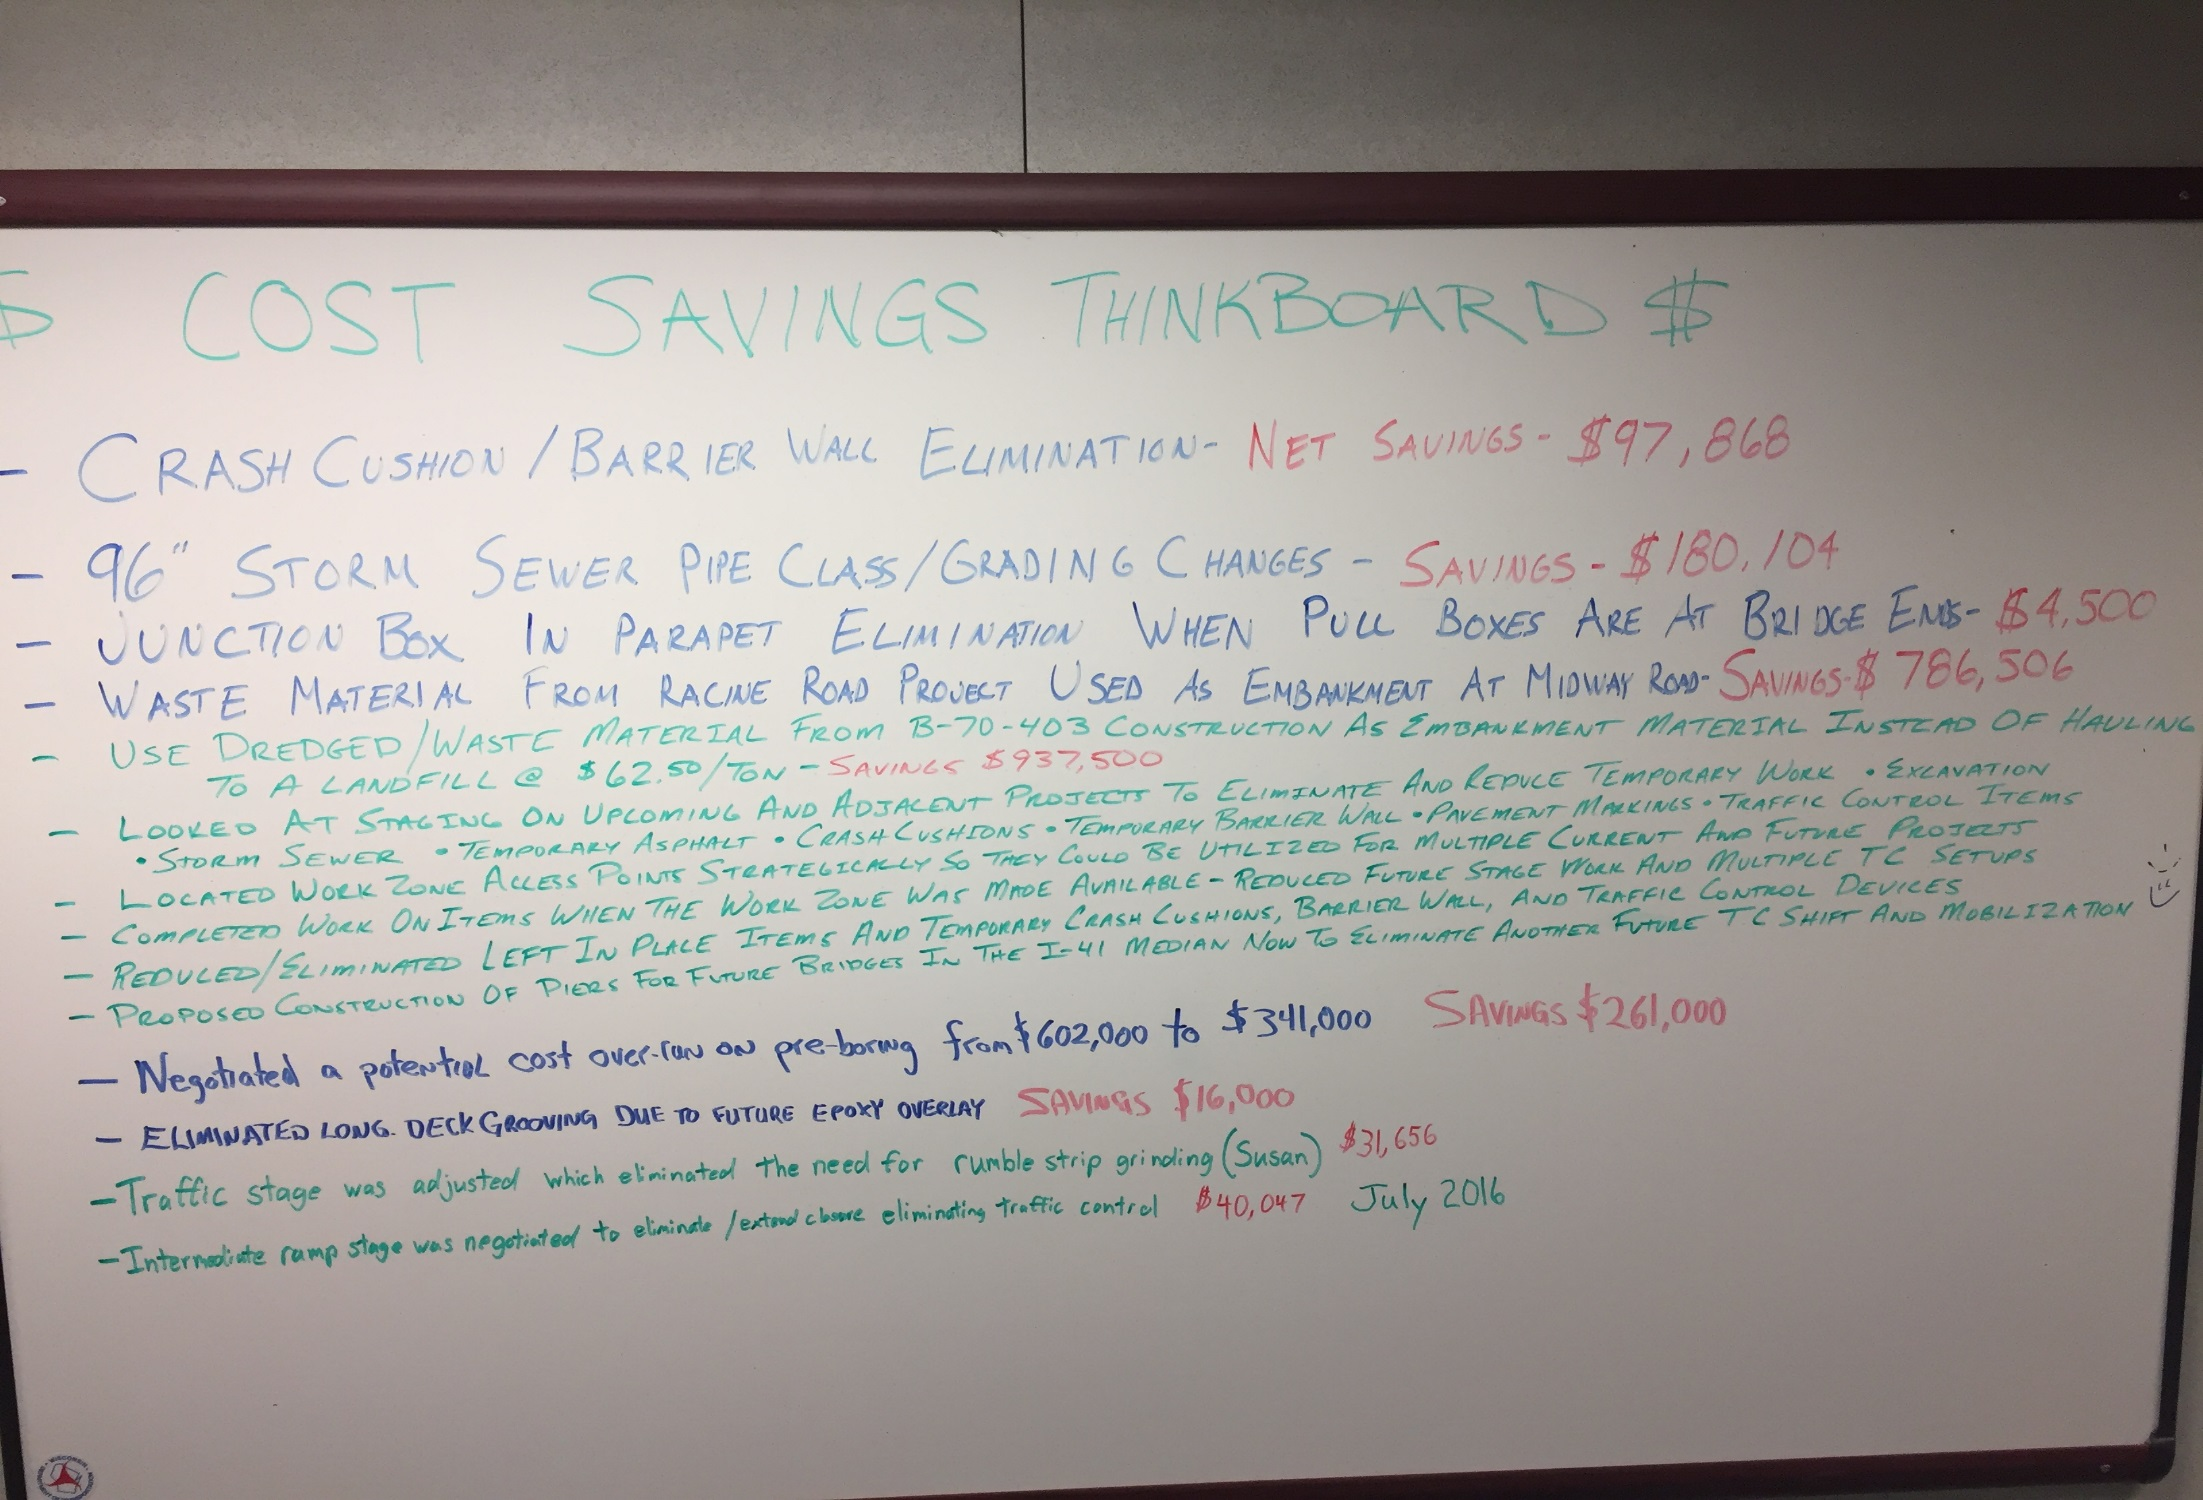 $ COST SAVINGS THINKBOARD $
- CRASH CUSHION / BARRIER WALL ELIMINATION - NET SAVINGS - $97,868
- 96" STORM SEWER PIPE CLASS/GRADING CHANGES - SAVINGS - $180,104
- JUNCTION BOX IN PARAPET ELIMINATION WHEN PULL BOXES ARE AT BRIDGE ENDS - $4,500
- WASTE MATERIAL FROM RACINE ROAD PROJECT USED AS EMBANKMENT AT MIDWAY ROAD - SAVINGS - $786,506
- USE DREDGED/WASTE MATERIAL FROM B-70-403 CONSTRUCTION AS EMBANKMENT MATERIAL INSTEAD OF HAULING
TO A LANDFILL @ $62.50/TON - SAVINGS $937,500
- LOOKED AT STAGING ON UPCOMING AND ADJACENT PROJECTS TO ELIMINATE AND REDUCE TEMPORARY WORK • EXCAVATION
• STORM SEWER • TEMPORARY ASPHALT • CRASH CUSHIONS • TEMPORARY BARRIER WALL • PAVEMENT MARKINGS • TRAFFIC CONTROL ITEMS
- LOCATED WORK ZONE ACCESS POINTS STRATEGICALLY SO THEY COULD BE UTILIZED FOR MULTIPLE CURRENT AND FUTURE PROJECTS
- COMPLETED WORK ON ITEMS WHEN THE WORK ZONE WAS MADE AVAILABLE - REDUCED FUTURE STAGE WORK AND MULTIPLE TC SETUPS
- REDUCED/ELIMINATED LEFT IN PLACE ITEMS AND TEMPORARY CRASH CUSHIONS, BARRIER WALL, AND TRAFFIC CONTROL DEVICES
- PROPOSED CONSTRUCTION OF PIERS FOR FUTURE BRIDGES IN THE I-41 MEDIAN NOW TO ELIMINATE ANOTHER FUTURE TC SHIFT AND MOBILIZATION
- Negotiated a potential cost over-run on pre-boring from $602,000 to $341,000 SAVINGS $261,000
- ELIMINATED LONG. DECK GROOVING DUE TO FUTURE EPOXY OVERLAY SAVINGS $16,000
- Traffic stage was adjusted which eliminated the need for rumble strip grinding (Susan) $31,656
- Intermediate ramp stage was negotiated to eliminate /extend closure eliminating traffic control $40,047 July 2016